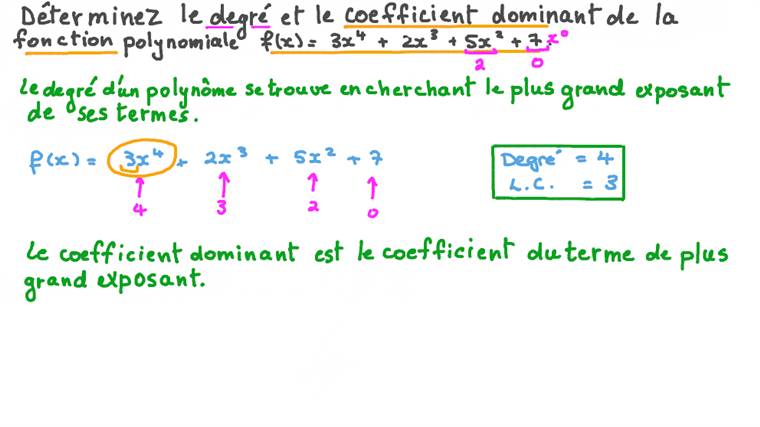 Déterminez le degré et le coefficient dominant de la
fonction polynomiale f(x) = 3x⁴ + 2x³ + 5x² + 7x⁰
2 0
Le degré d'un polynôme se trouve en cherchant le plus grand exposant
de ses termes.
f(x) = 3x⁴ + 2x³ + 5x² + 7
4 3 2 0
Degré = 4
L.C. = 3
Le coefficient dominant est le coefficient du terme de plus
grand exposant.